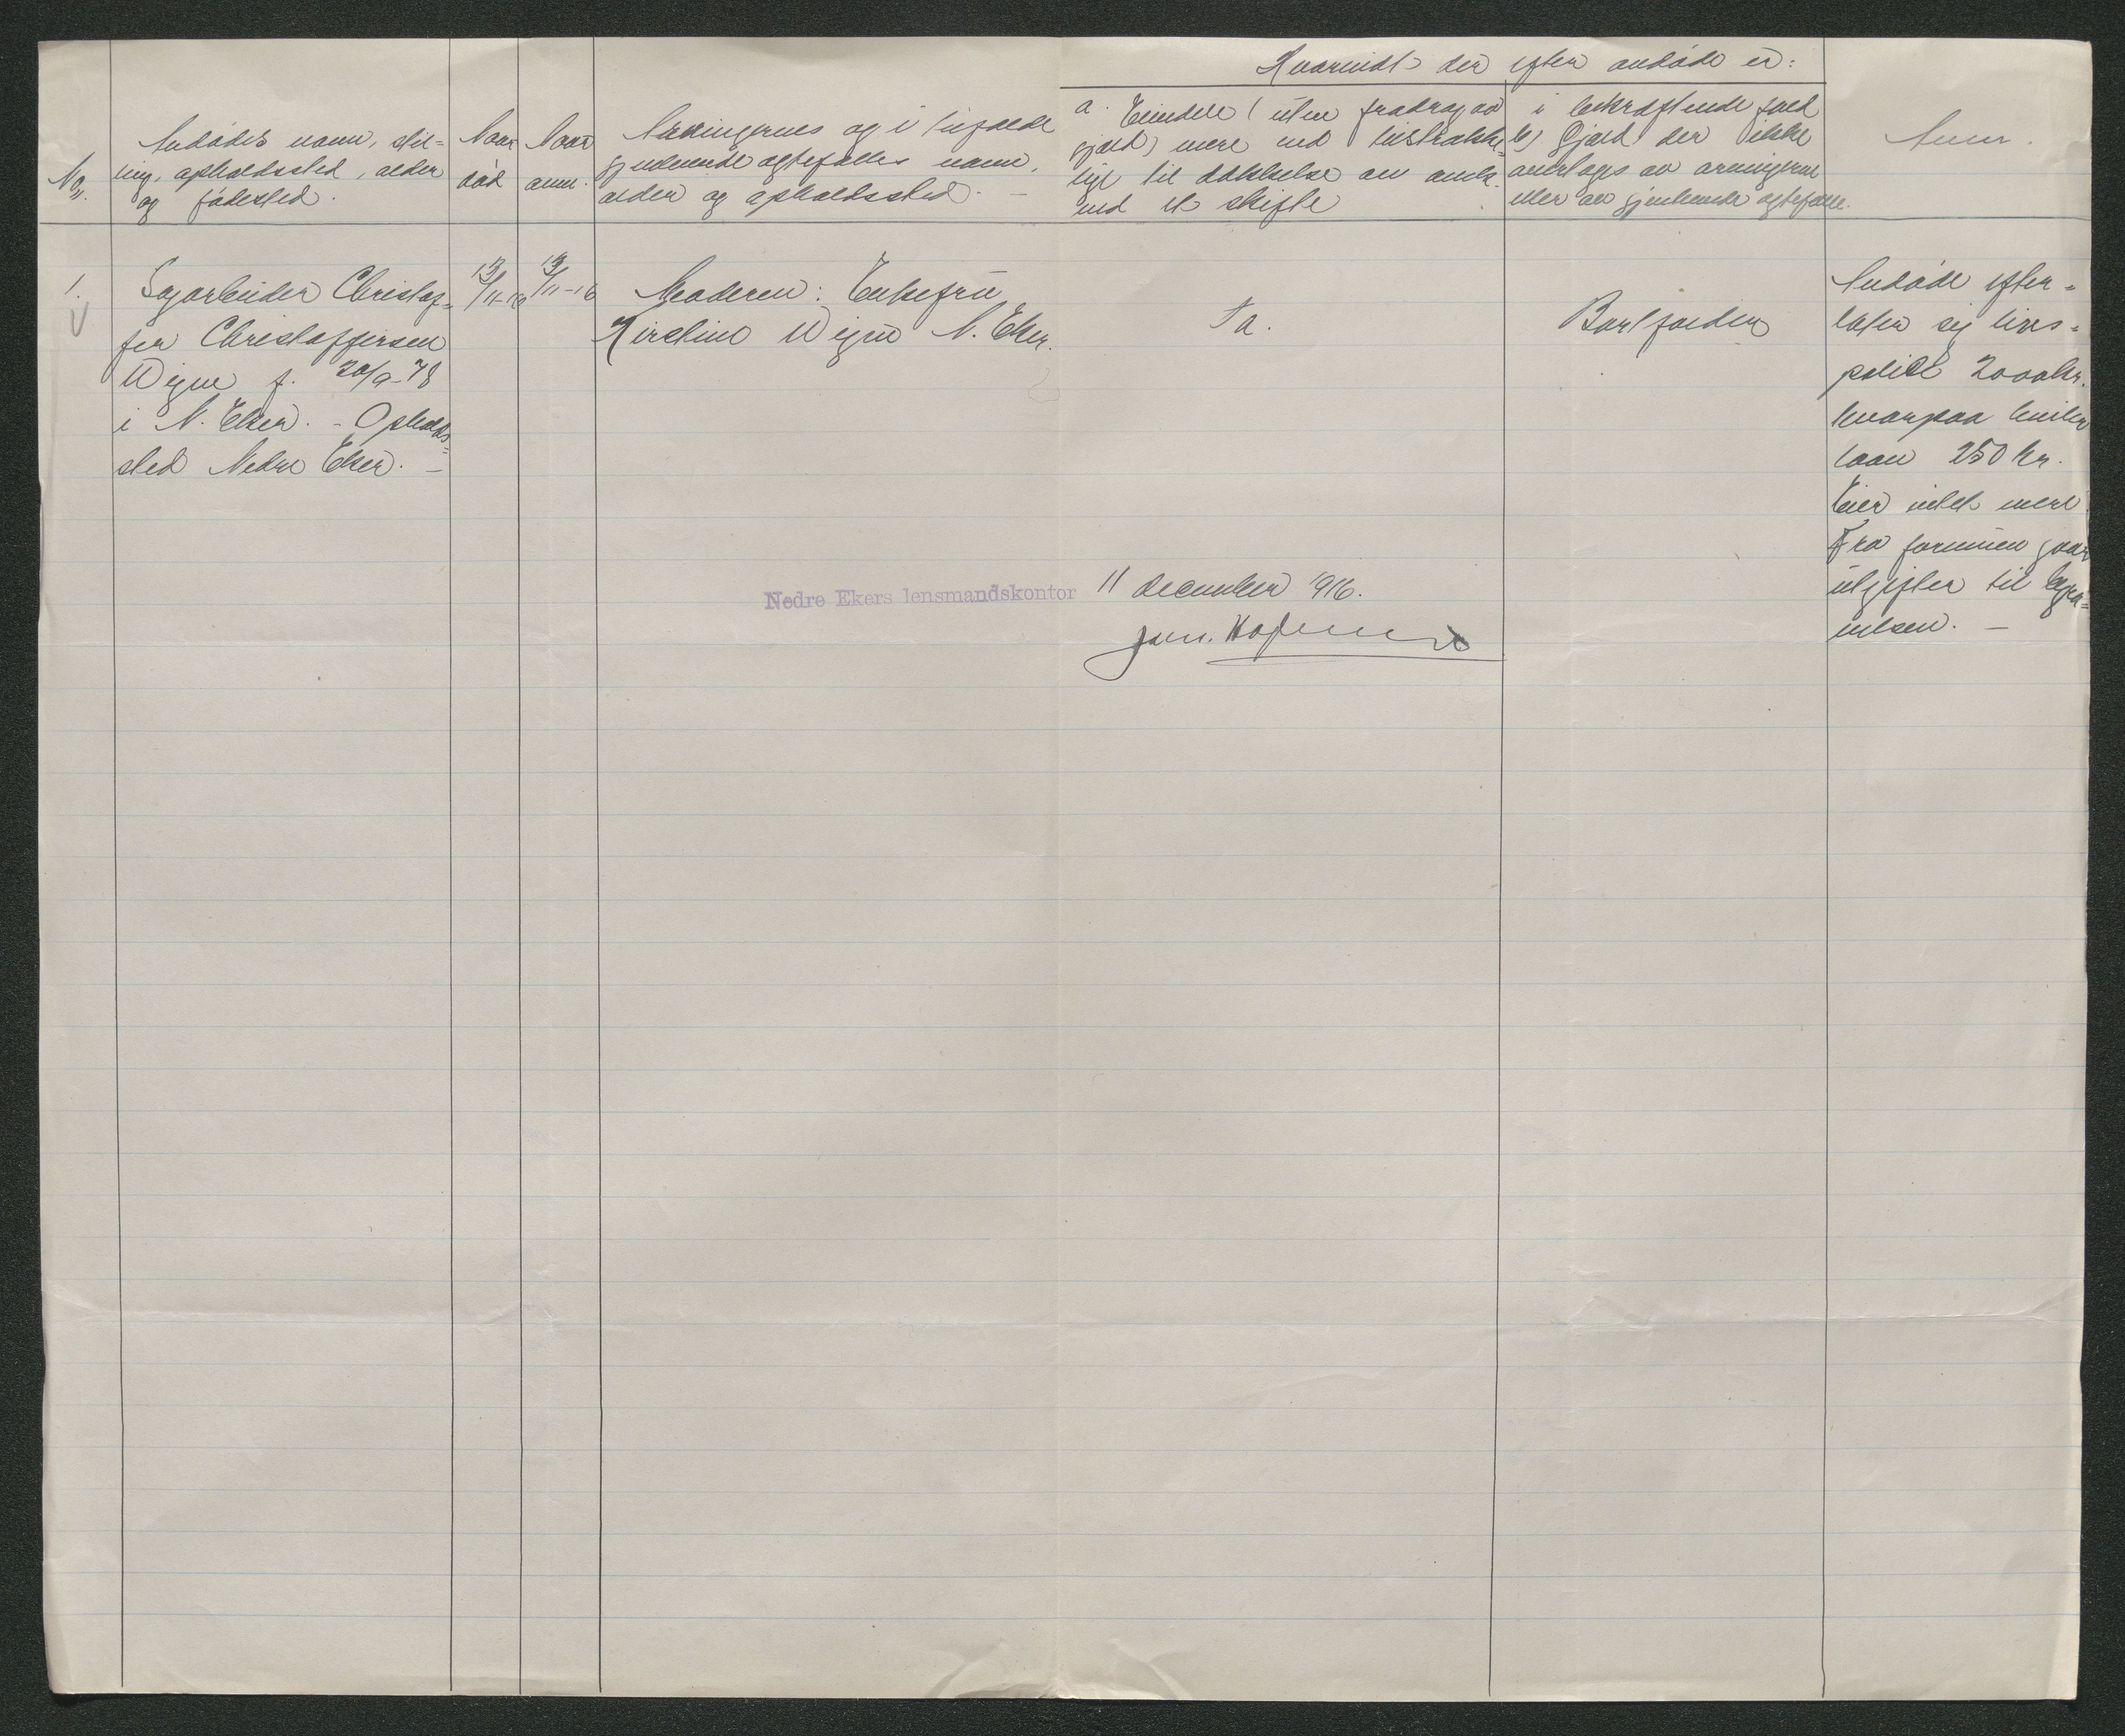 Hvorvidt der efter avdøde er:
No.
Avdødes navn, stil-
ling, opholdssted, alder
og fødested.
Naar
død
Naar
anm.
Arvingernes og i tilfælde
gjenlevende egtefælles navn,
alder og opholdssted. -
a. Eiendele (uten fradrag av
gjæld) mere end tilstrække-
lige til dækkelse av omk.
ved et skifte
i bekræftende fald
b) Gjæld der ikke
overtages av arvingerne
eller av gjenlevende egtefælle.
Anm.
1.
Sagarbeider Christof-
fer Christoffersen
Wegne f. 20/9-78
i N. Eker. - Opholds-
sted Nedre Eker. -
13/11-16
13/11-16
Moderen: Enkefru
Kirstine Wegne N. Eker.
Ja.
Bortfalder
Avdøde efter-
later sig livs-
police 2000 kr.
hvorpaa hviler
laan 250 kr.
Eier intet mere.
Fra formuen gaar
utgifter til begra-
velsen. -
Nedre Ekers lensmandskontor 11 december 1916.